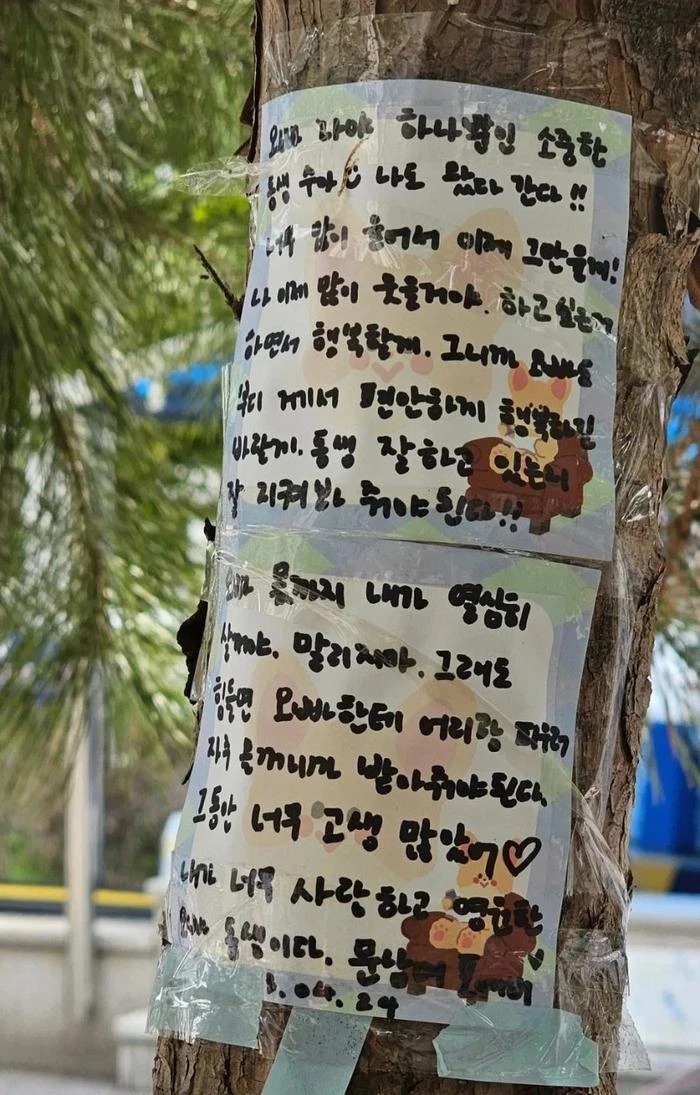 오빠 나야 하나뿐인 소중한
동생 수아 나도 왔다 간다!!
너무 많이 울어서 이제 그만울게!
나 이제 많이 웃을거야. 하고싶은거
하면서 행복할게. 그니까 오빠도
부디 거기서 편안하게 행복하길
바란게. 동생 잘하고 있는지
잘 지켜봐 줘야된다!!
오빠 몫까지 내가 열심히
살거야. 말리지마. 그래도
힘들면 오빠한테 어리광 피우러
자주 올꺼니까 받아줘야된다.
그동안 너무 고생 많았어♡
내가 너무 사랑하고 영원한
오빠 동생이다.
3.04.24